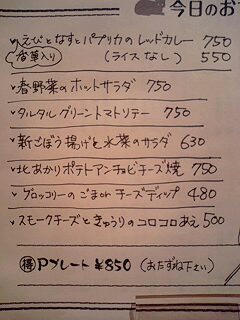 今日のお
えびとなすとパプリカのレッドカレー 750
香草入り (ライスなし) 550
春野菜のホットサラダ 750
タルタルグリーントマトソテー 750
新ごぼう揚げと水菜のサラダ 630
北あかりポテトアンチョビチーズ焼 780
ブロッコリーのごまonチーズディップ 480
スモークチーズときゅうりのコロコロあえ 500
得 Pプレート ¥850 (おたずね下さい)